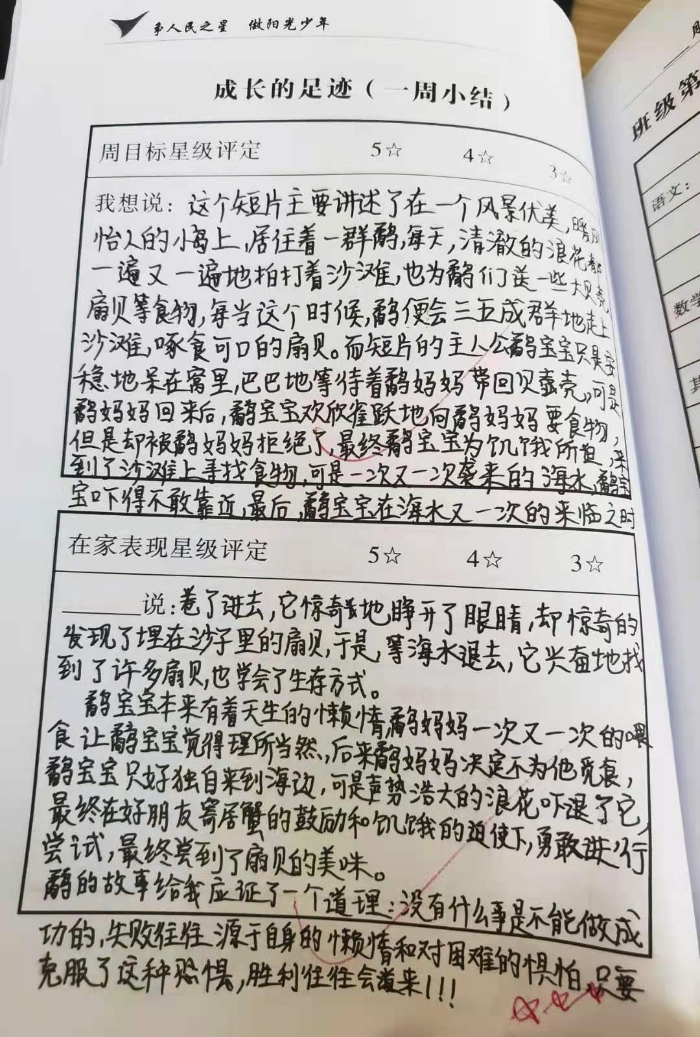 争人民之星 做阳光少年
成长的足迹（一周小结）
周目标星级评定 5☆ 4☆ 3☆
我想说：这个短片主要讲述了在一个风景优美，暖
怡人的小岛上，居住着一群鹬，每天，清澈的浪花都
一遍又一遍地拍打着沙滩，也为鹬们送一些大贝壳，
扇贝等食物，每当这个时候，鹬便会三五成群地走上
沙滩，啄食可口的扇贝。而短片的主人公鹬宝宝只是安
稳地呆在窝里，巴巴地等待着鹬妈妈带回贝壳。可是
鹬妈妈回来后，鹬宝宝欢欣雀跃地向鹬妈妈要食物，
但是却被鹬妈妈拒绝了，最终鹬宝宝为饥饿所迫，来
到了沙滩上寻找食物，可是一次又一次袭来的海水，鹬宝
宝吓得不敢靠近，最后，鹬宝宝在海水又一次的来临之时
在家表现星级评定 5☆ 4☆ 3☆
说：卷了进去，它惊奇地睁开了眼睛，却惊奇的
发现了埋在沙子里的扇贝，于是，等海水退去，它兴奋地找
到了许多扇贝，也学会了生存方式。
鹬宝宝本来有着天生的懒惰，鹬妈妈一次又一次的喂
食让鹬宝宝觉得理所当然，后来鹬妈妈决定不为他觅食，
鹬宝宝只好独自来到海边，可是声势浩大的浪花吓退了它，
最终在好朋友寄居蟹的鼓励和饥饿的迫使下，勇敢进行
尝试，最终尝到了扇贝的美味。
鹬的故事给我应证了一个道理：没有什么事是不能做成
功的，失败往往源于自身的懒惰和对困难的惧怕，只要
克服了这种恐惧，胜利往往会道来！！！
班级第
语文：
数学